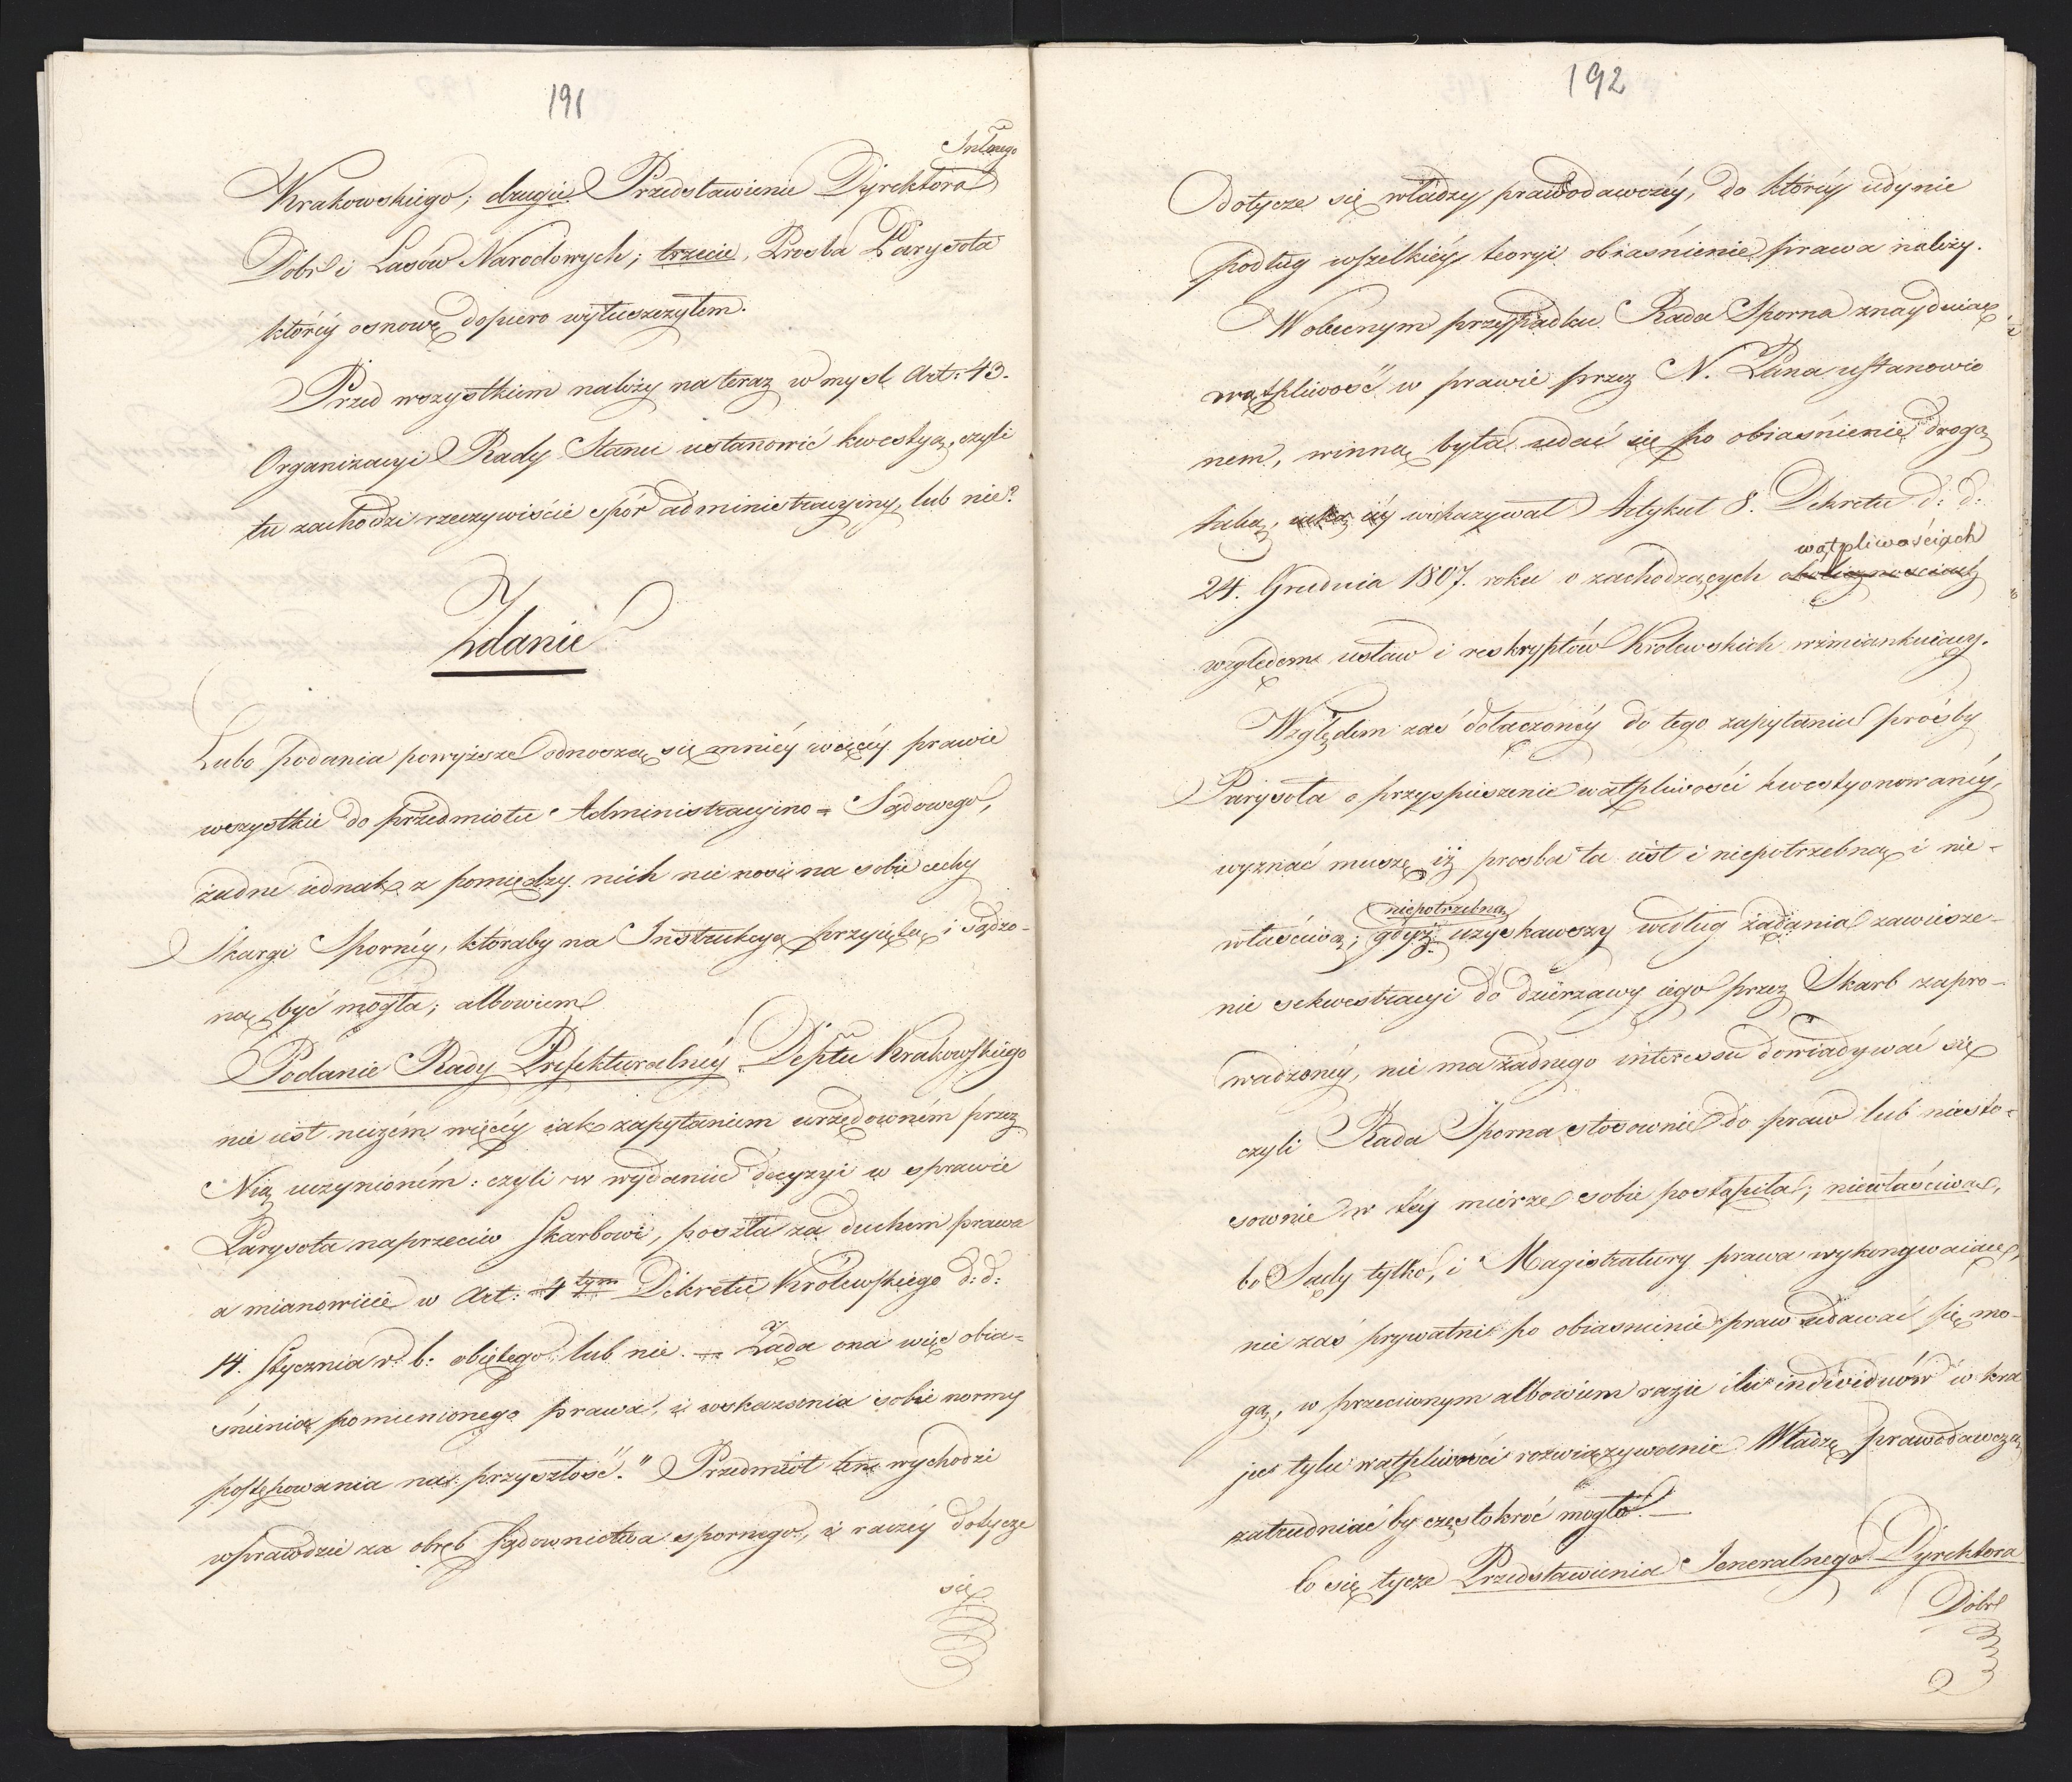 191
Jnłnego
Krakowskiego; drugie Przedstawienie Dyrektora
Dóbr i Lasów Narodowych; trzecie, Prosba Parysota
któréy osnowę dopiero wyłuszczyłem.
Przed wszystkiem należy na teraz w mysl Art: 43.
Organizacyi Rady Stanu ustanowić kwestyą, czyli
tu zachodzi rzeczywiście spór administracyiny, lub nie?
Zdanie
Lubo podania powyższe odnoszą się mniéy więcéy prawie
wszystkie do przedmiotu Administracyino = Sądowego,
żadne iednak z pomiędzy nich nie nosi na sobie cechy
Skargi Spornéy, któraby na Instrukcyą przyiętą i sądzo-
ną być mogła; albowiem
Podanie Rady Prefekturalnéy Deptu Krakowskiego
nie iest niczém więcéy iak zapytaniem urzędowném przez
Nią uczynioném: czyli w wydaniu decyzyi w sprawie
Parysota naprzeciw Skarbowi, poszła za duchem prawa
a mianowicie w Art: 4tym Dekretu Królewskiego d: d:
14. Stycznia r. b: obiętego, lub nie. — Żąda ona więc obia=
śnienia pomienionego prawa, i wskazania sobie normy
postępowania na przyszłość." Przedmiot ten wychodzi
wprawdzie za obręb sądownictwa spornego, i raczéy dotycze
się
192
dotycze się władzy prawodawczéy, do któréy iedynie
podług wszelkiéy teoryi obiaśnienie prawa należy.
W obecnym przypadku Rada Sporna znayduiąc
wątpliwość w prawie przez N. Pana ustanowio
nem, winną była udać się po obiaśnienie drogą
taką, iaką iéy wskazywał Artykuł 8. Dekretu d: d:
wątpliwościach
24. Grudnia 1807. roku o zachodzących okolicznosciach
względem ustaw i reskryptów Królewskich wzmiankuiący.
Względem zaś dołączonéy do tego zapytania prośby
Parysota o przyspieszenie wątpliwości kwestyonowanéy,
wyznać muszę iż prosba ta iest i niepotrzebną i nie-
niepotrzebną
właściwą; gdyż uzyskawszy według żądania zawiesze-
nie sekwestracyi do dzierzawy iego przez Skarb zapro-
wadzonéy, nie ma żadnego interessu dowiadywać się
czyli Rada Sporna stosownie do praw lub niesto=
sownie w téy mierze sobie postąpiła; niewłaściwa,
bo Sądy tylko, i Magistratury prawa wykonywaiące,
nie zaś prywatni po obiasnienie praw udawać się mo-
gą, w przeciwnym albowiem razie ile individuów w kra
ju tylu wątpliwości rozwiązywanie Władzę prawodawczą
zatrudniać by częstokroć mogło. —
Co się tycze Przedstawienia Jeneralnego Dyrektora
Dóbr